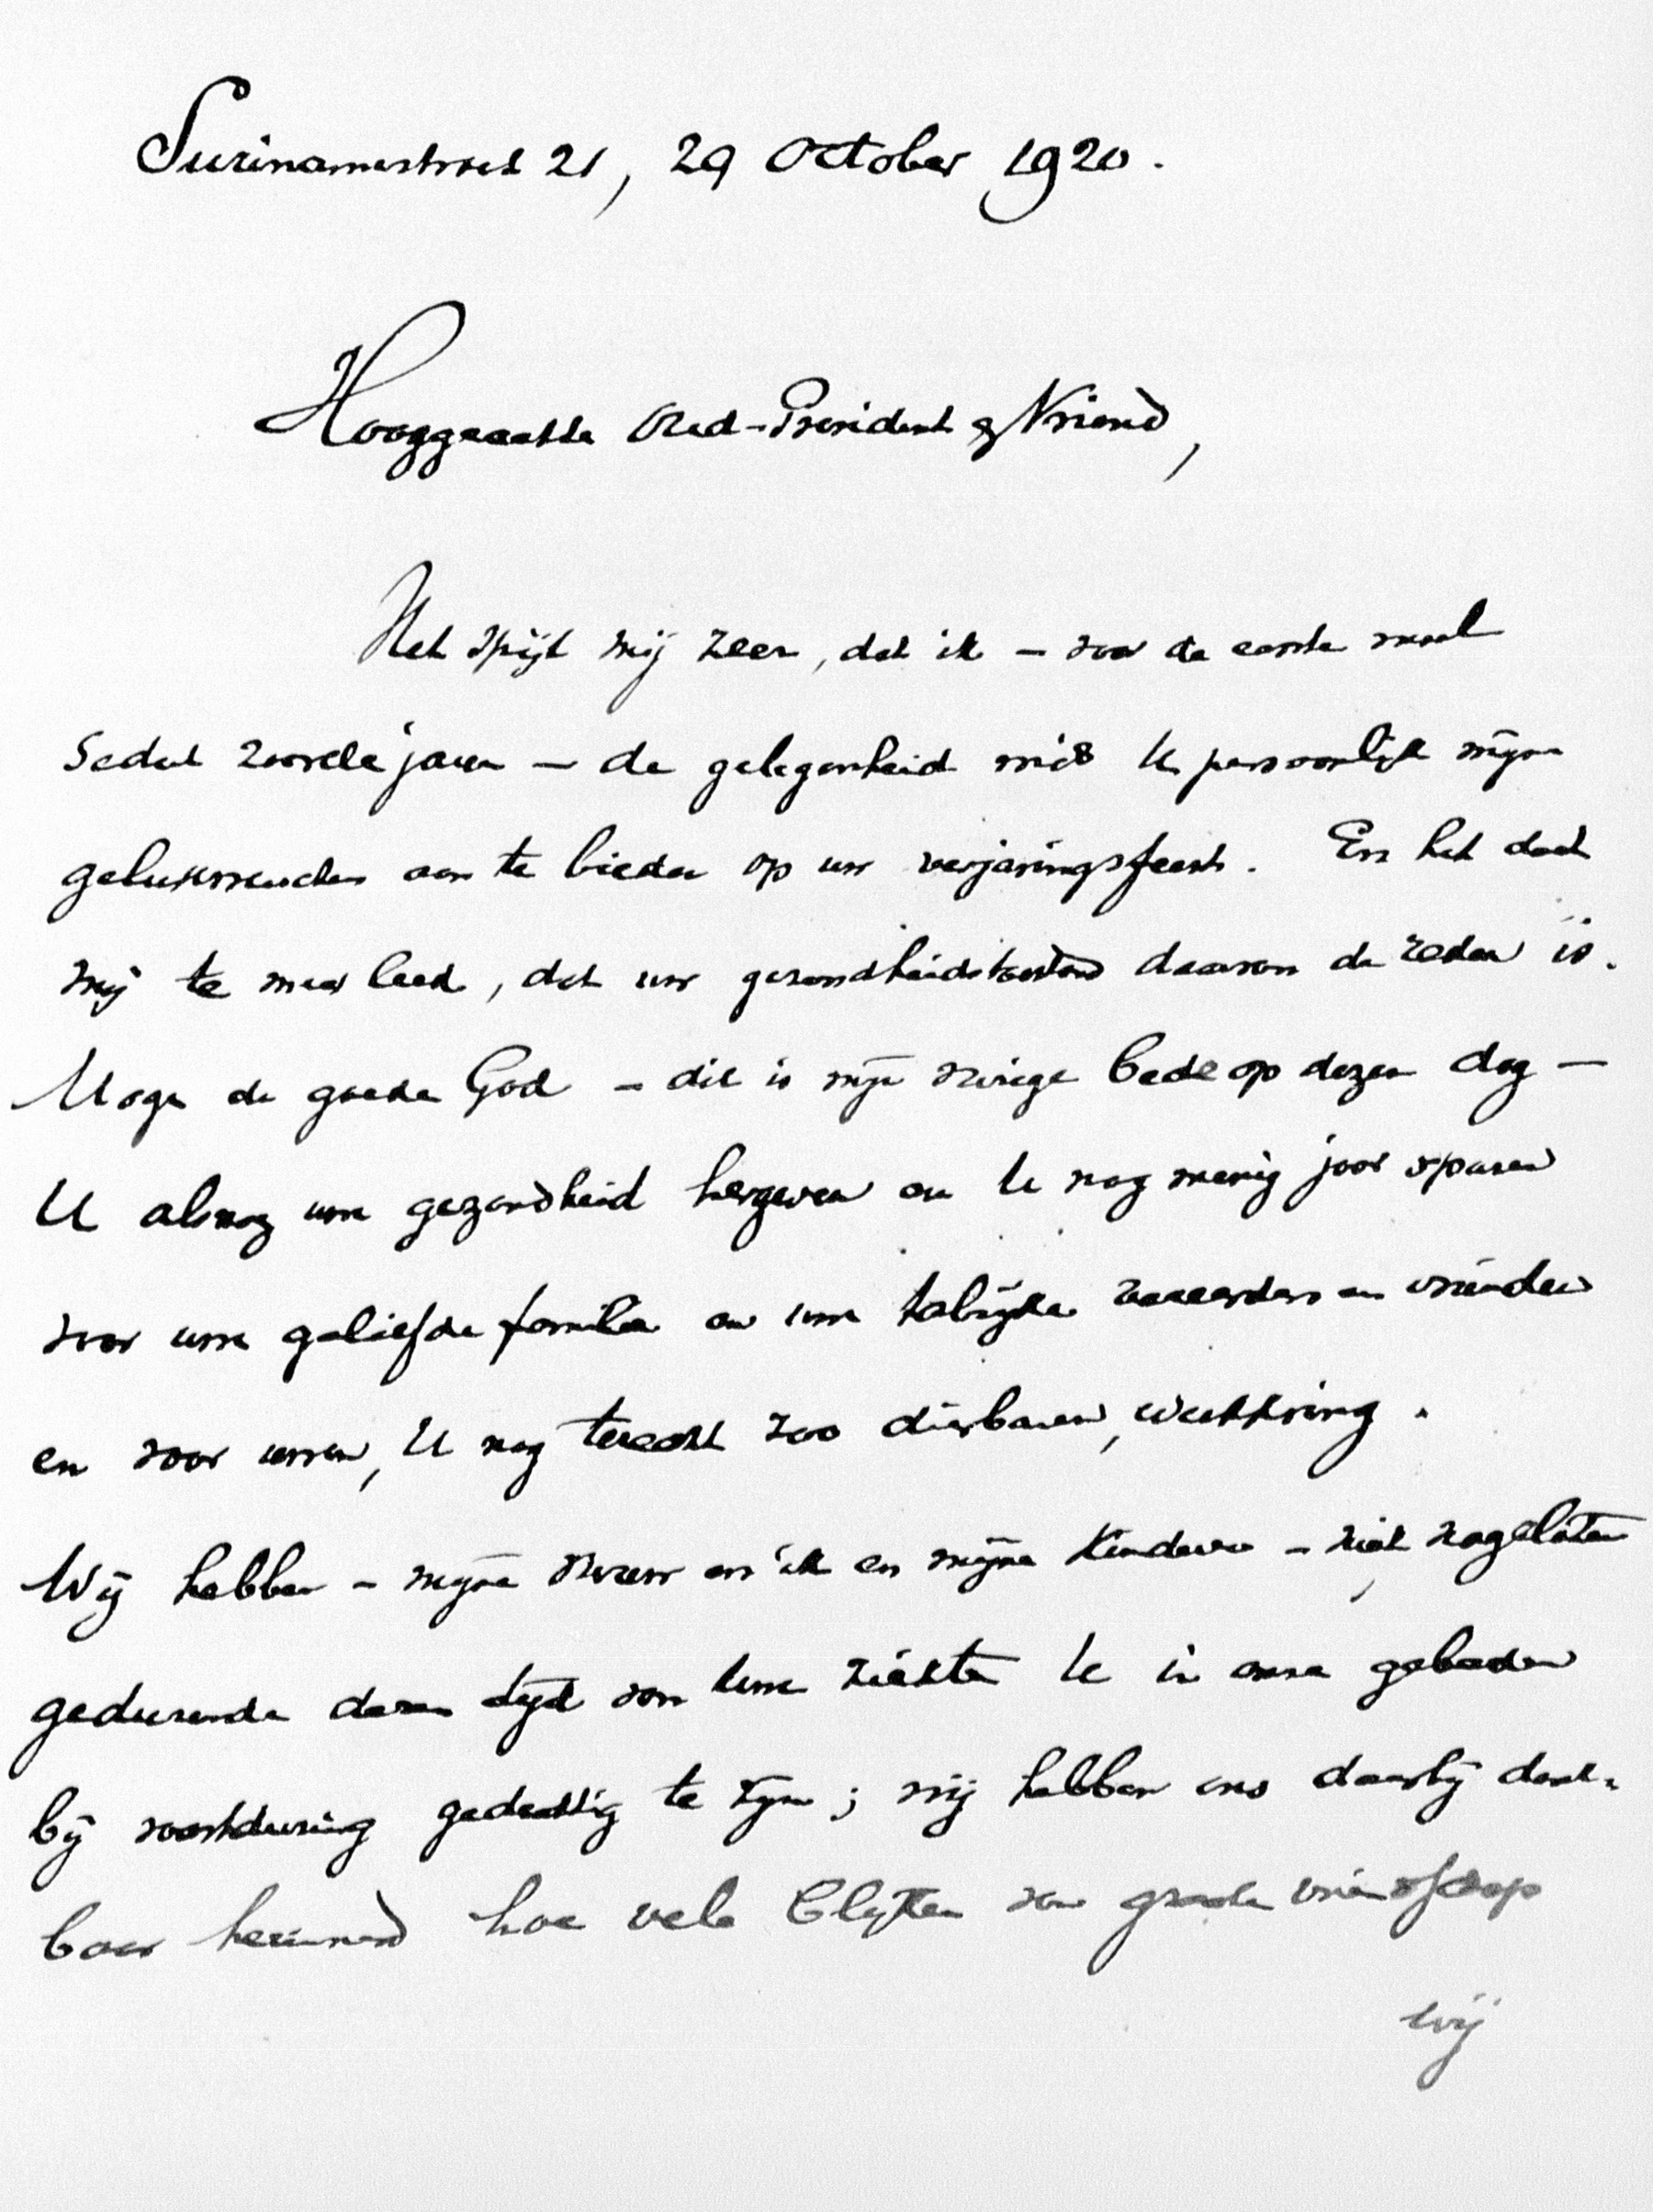 Surinamestraat 21, 29 October 1920.
Hooggeachte Oud-President & Vriend,
Het spijt mij zeer, dat ik – voor de eerste maal
sedert zoovele jaren – de gelegenheid mis U persoonlijk mijne
gelukwenschen aan te bieden op uw verjaringsfeest. En het doet
mij te meer leed, dat uw gezondheidstoestand daarvan de reden is.
Moge de goede God – dit is mijn vurige bede op dezen dag –
U alsnog uwe gezondheid hergeven en U nog menig jaar sparen
voor uwe geliefde familie en uwe talrijke vereerders en vrienden
en voor uwen, U nog steeds zoo dierbaren, werkkring.
Wij hebben – mijne vrouw en ik en mijne kinderen – niet nagelaten
gedurende dezen tijd van Uwe ziekte U in onze gebeden
bij voortduring gedachtig te zijn; wij hebben ons daarbij dank-
baar herinnerd hoe vele blijken van groote vriendschap
wij